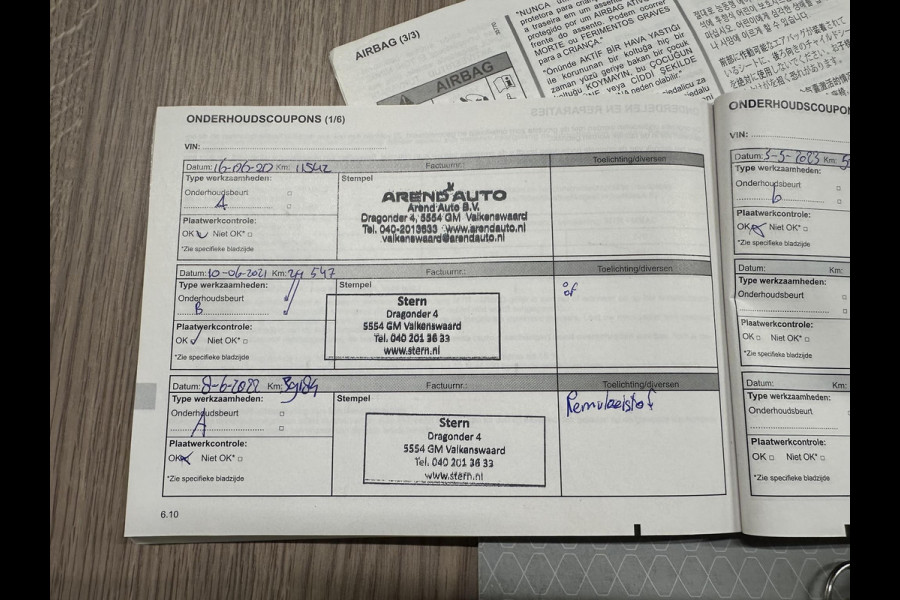 AIRBAG (3/3)
AIRBAG
"NUNCA
protetora para crian
a traseira em um assen
protegido por um AIRBAG ATIV
frente do assento. Podem ocorrer
MORTE ou FERIMENTOS GRAVES
para a CRIANÇA."
"Önünde AKTİF BİR HAVA YASTIĞI
ile korunulan bir koltuğa hiç bir
zaman yüzü geriye bakan bir çocuk
koltuğu KOYMAYIN, bu ÇOCUĞUN
veya CİDDİ ŞEKİLDE
neden olabilir."
ONDERHOUDSCOUPONS (1/6)
VIN:
Datum: 16-06-20 Km: 11542 Factuurnr.: Toelichting/diversen
Type werkzaamheden: Stempel
Onderhoudsbeurt
A
Plaatwerkcontrole:
OK Niet OK*
*Zie specifieke bladzijde
AREND AUTO
Arend Auto B.V.
Dragonder 4, 5554 GM Valkenswaard
Tel. 040-2013633 www.arendauto.nl
valkenswaard@arendauto.nl
Datum: 10-06-2021 Km: 24 547 Factuurnr.: Toelichting/diversen
Type werkzaamheden: Stempel
Onderhoudsbeurt
B
Plaatwerkcontrole:
OK Niet OK*
*Zie specifieke bladzijde
Stern
Dragonder 4
5554 GM Valkenswaard
Tel. 040 201 36 33
www.stern.nl
Datum: 8-6-2022 Km: Factuurnr.: Toelichting/diversen
Type werkzaamheden: Stempel
Onderhoudsbeurt
A
Plaatwerkcontrole:
OK Niet OK*
*Zie specifieke bladzijde
Stern
Dragonder 4
5554 GM Valkenswaard
Tel. 040 201 36 33
www.stern.nl
Remvloeistof
6.10
ONDERHOUDSCOUPON
VIN:
Datum: 5-5-2023 Km: 5
Type werkzaamheden:
Onderhoudsbeurt
b
Plaatwerkcontrole:
OK Niet OK*
*Zie specifieke bladzijde
Datum: Km:
Type werkzaamheden:
Onderhoudsbeurt
Plaatwerkcontrole:
OK Niet OK*
*Zie specifieke bladzijde
Datum: Km:
Type werkzaamheden:
Onderhoudsbeurt
Plaatwerkcontrole:
OK Niet OK*
*Zie specifieke bladzijde